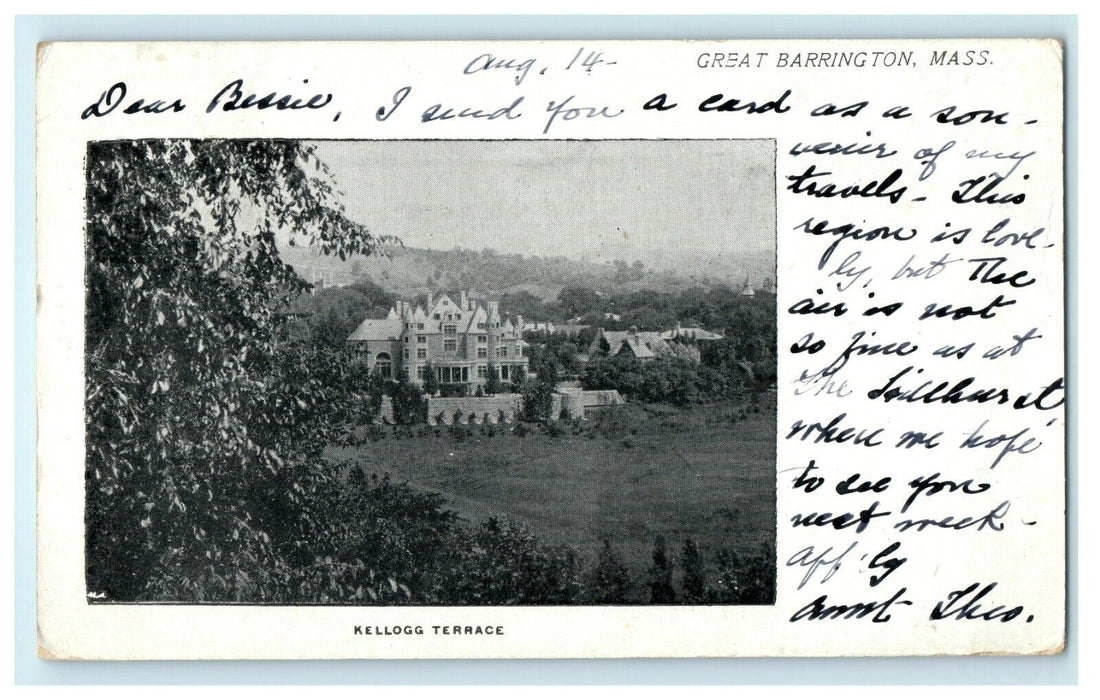 GREAT BARRINGTON, MASS.
Aug. 14-
Dear Bessie, I send You a card as a sou-
venir of my
travels - This
region is love-
ly, but The
air is not
so fine as at
The
where we hope
to see you
next week -
aff'ly
Aunt Theo.
KELLOGG TERRACE